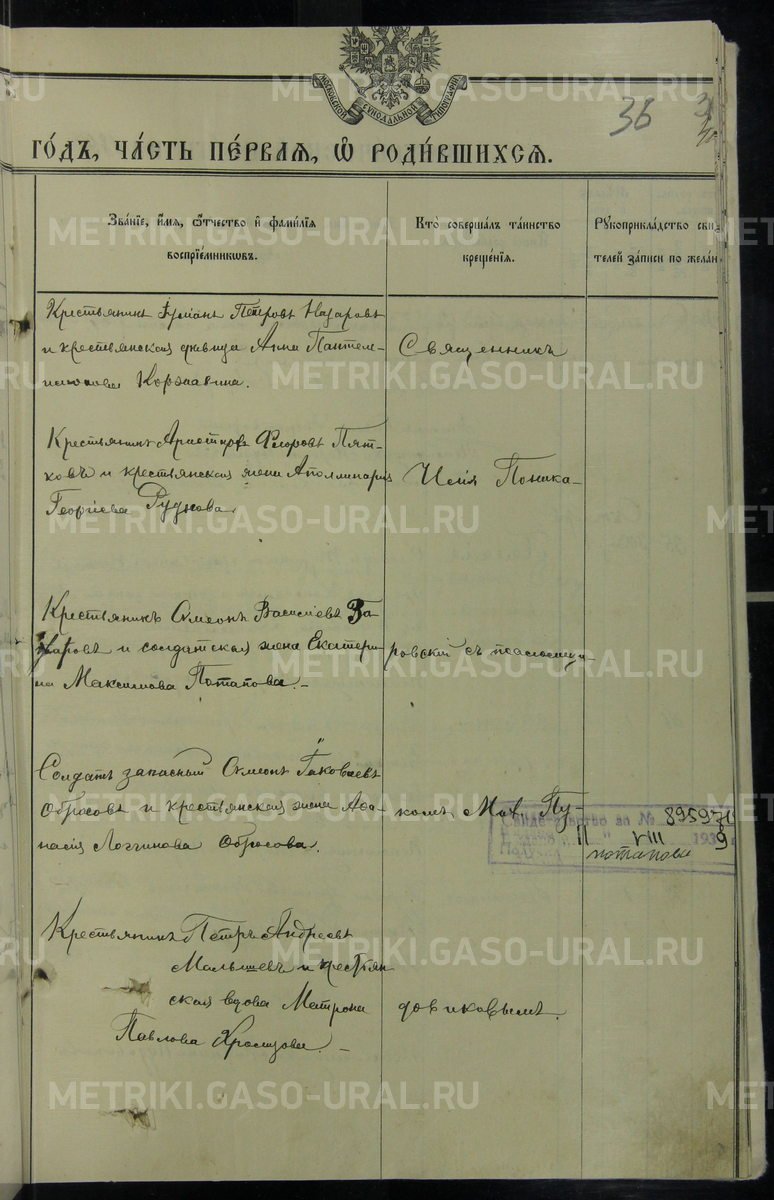 МОСКОВСКОЙ СѴНОДАЛЬНОЙ ТИПОГРАФІИ
36
ГО́ДЪ, ЧА́СТЬ ПЕ́РВАЯ, Ѽ РОДИ́ВШИХСЯ.
Зва́нїе, и҆́мя, ѻ҆́тчество и҆ фами́лїя
воспрїе́мниковъ.
Кто̀ соверша́лъ та́инство
креще́нїя.
Рꙋкоприкла́дство сви
телей за́писи по жела́н
METRIKI.GASO-URAL.RU
Крестьянинъ Петровъ Назаровъ
и крестьянская дѣвица Анна Пантел-
Коржавина.
Священникъ
Крестьянинъ Флоровъ Пят-
ковъ и крестьянская жена Аполлинарія
Георгіева Руднова.
Илія Поника-
Крестьянинъ Симеонъ Василіевъ За-
харовъ и солдатская жена Екатери-
на Максимова Потапова.-
ровскій съ псаломщи-
Солдатъ запасный Симеонъ Іаковлевъ
Обросовъ и крестьянская жена Аѳа-
насія Логгинова Обросова.
комъ Пу-
№ 895971
11 VIII 1939
Потапова
Крестьянинъ Петръ Андреевъ
Малышевъ и крестьян
ская вдова Матрона
Павлова
довиковымъ.